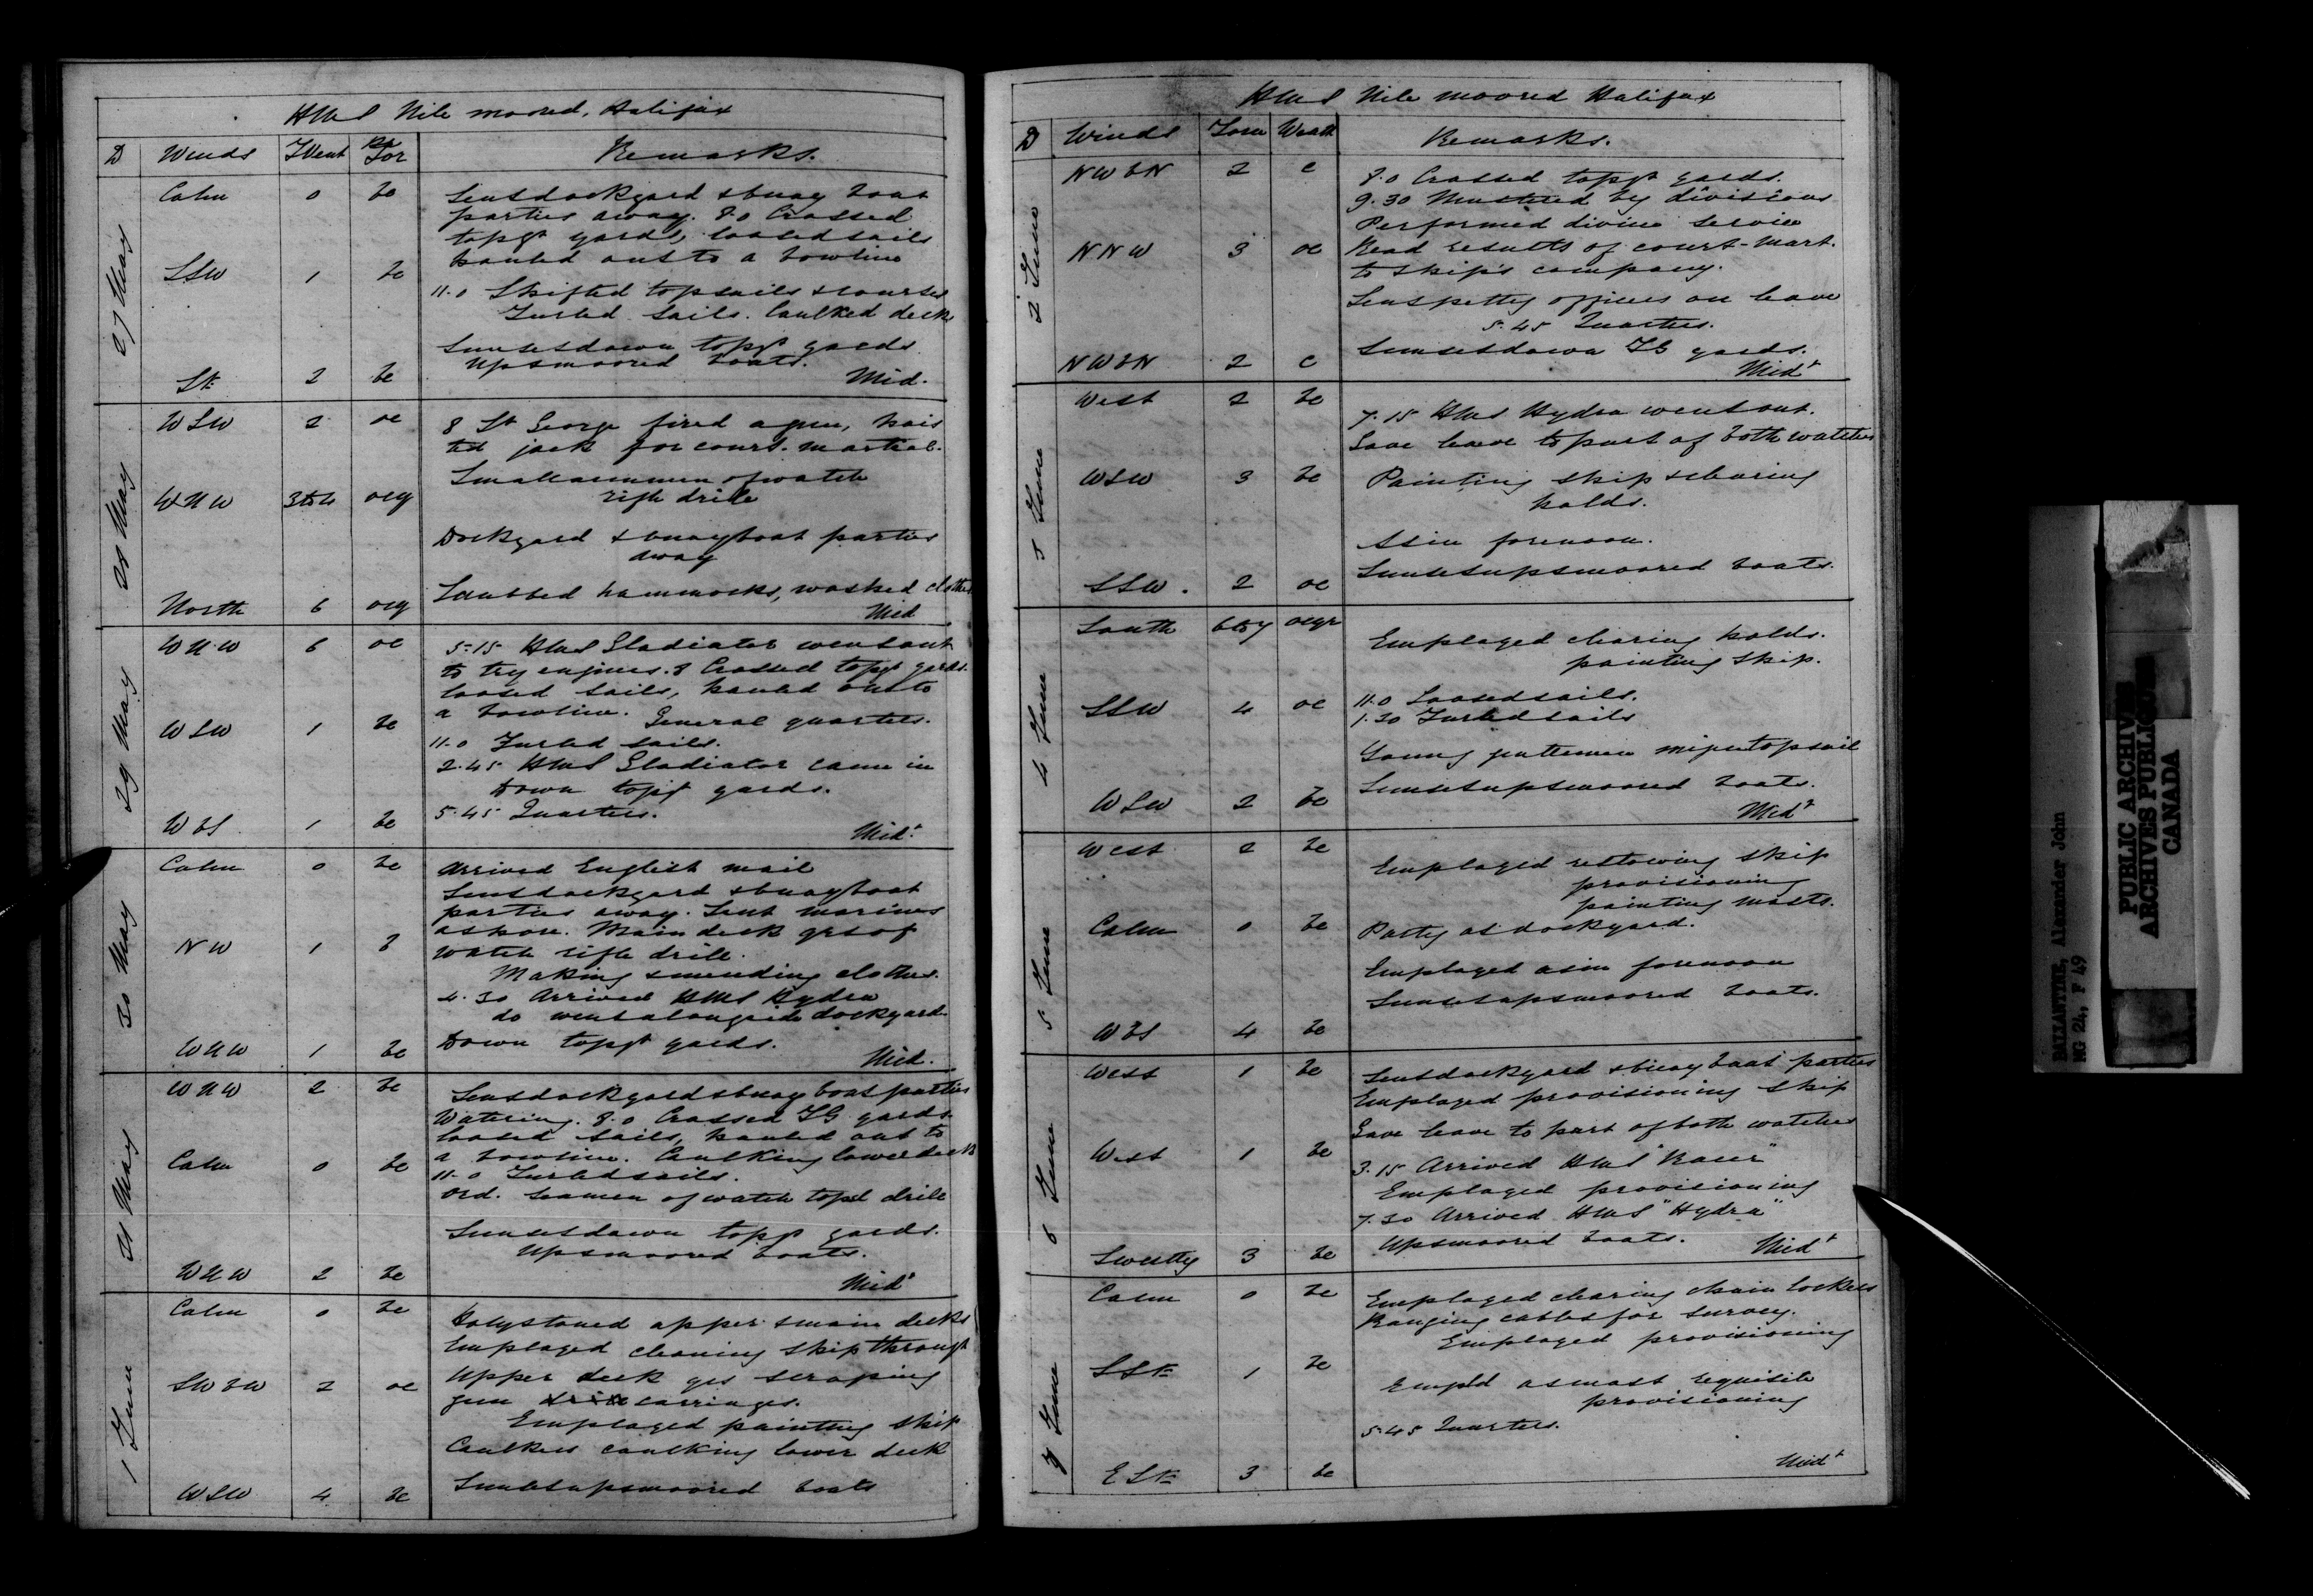 HMS Nile moored, Halifax
D Winds For Remarks.
27 May
Calm 0 bc Sent dockyard & buoy boat
parties away. 8.0 Crossed
topgt yards, loosed sails
hauled out to a bowline
SSW 1 bc
11.0 Shifted topsails & courses
Furled sails. Caulked deck
Sunset down topgt yards
Up & moored boats.
2 bc Mid.
28 May
WSW 2 oc 8 St George fired a gun, hois
ted jack for court-martial.
Small arm men of watch
rifle drill
WNW 3to4 ocq
Dockyard & buoy boat parties
away
Scrubbed hammocks, washed clothes
North 6 ocq Mid
29 May
WNW 6 oc 5-15 HMS Gladiator went out
to try engines. 8 Crossed topgt yards
loosed sails, hauled out to
a bowline. General quarters.
WSW 1 bc
11.0 Furled sails.
2.45 HMS Gladiator came in
Down topgt yards.
5.45 Quarters.
WbS 1 bc Midt
30 May
Calm 0 bc Arrived English mail
Sent dockyard & buoy boat
parties away. Sent marines
ashore. Main deck qrs of
NW 1 b watch rifle drill.
Making & mending clothes.
4.30 Arrived HMS Hydra
do went alongside dockyard.
Down topgt yards.
WNW 1 bc Mid.
31 May
WNW 2 bc Sent dockyard & buoy boat parties
Watering. 8.0 Crossed TG yards
loosed sails, hauled out to
a bowline. Caulking lower deck
Calm 0 bc
11.0 Furled sails.
Ord. Seamen of watch topsl drill
Sunset down topgt yards.
Up & moored boats.
WNW 2 bc Midt
1 June
Calm 0 bc Holystoned upper & main decks
Employed cleaning ship througt
Upper deck qrs scraping
SWbW 2 oc gun drill carriages.
Employed painting ship
Caulkers caulking lower deck
WSW 4 bc Sunset up & moored boats
HMS Nile moored Halifax
D Winds Force Weath Remarks.
2 June
NWbN 2 c 8.0 Crossed topgt yards.
9.30 Mustered by divisions
Performed divine service
NNW 3 oc Read results of court-mart.
to ship's company.
Sent petty officers on leave
5.45 Quarters.
Sunset down TG yards.
NWbN 2 c Midt
3 June
West 2 bc 7.15 HMS Hydra went out.
Gave leave to part of both watches
WSW 3 bc Painting ship & clearing
holds.
As in forenoon.
Sunset up & moored boats.
SSW. 2 oc
4 June
South 6to7 ocqr Employed clearing holds.
painting ship.
11.0 Loosed sails.
SSW 4 oc 1.30 Furled sails
Young gentlemen mizen topsail
Sunset up & moored boats.
WSW 2 bc Midt
5 June
West 2 bc Employed restowing ship
provisioning
painting masts.
Calm 0 bc Party at dockyard.
Employed as in forenoon
Sunset up & moored boats.
WbS 4 bc
6 June
West 1 bc Sent dockyard & buoy boat parties
Employed provisioning ship
Gave leave to part of both watches
West 1 bc 3.15 Arrived HMS "Racer"
Employed provisioning
7.30 Arrived HMS "Hydra"
Up & moored boats. Midt
Swestly 3 bc
7 June
Calm 0 bc Employed clearing chain lockers
Ranging cables for survey.
Employed provisioning
1 bc Empld as most requisite
provisioning
5.45 Quarters.
3 bc Midt
BALLANTINE, Alexander John
MG 24, F 49
PUBLIC ARCHIVES
ARCHIVES PUBLIQUES
CANADA